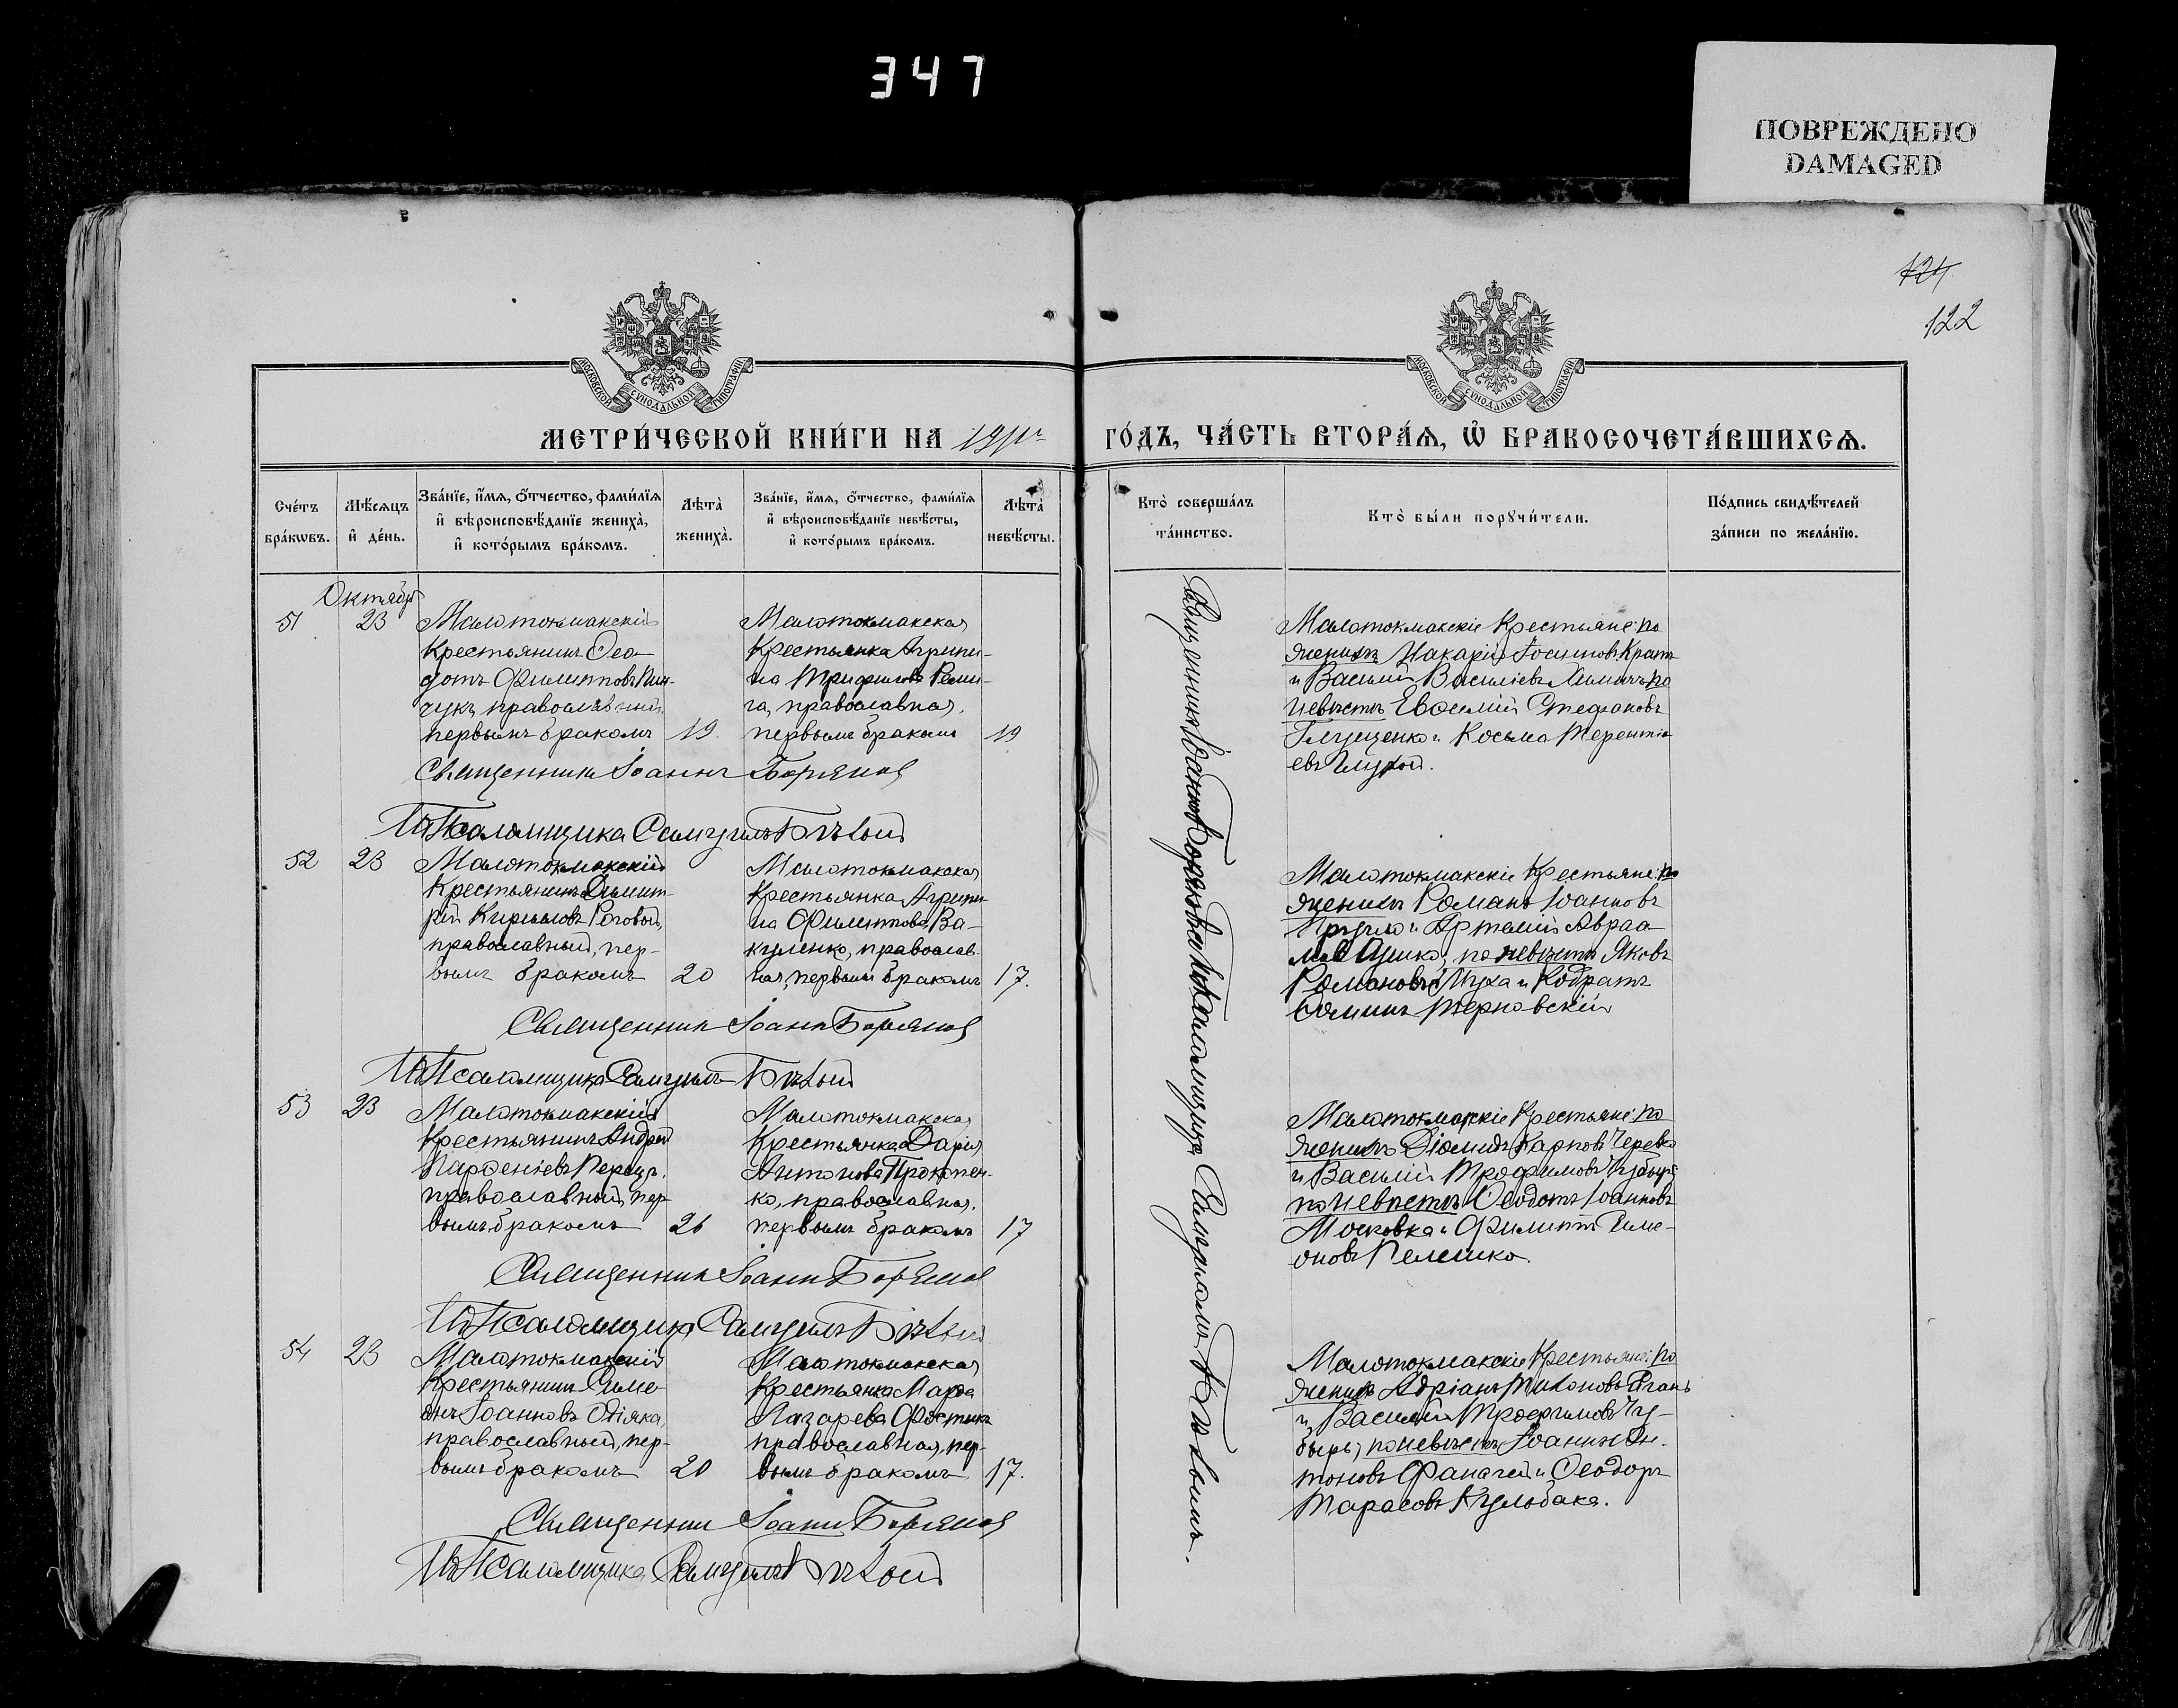 347
ПОВРЕЖДЕНО
DAMAGED
124
122
МОСКОВСКОЙ СѴНОДАЛЬНОЙ ТИПОГРАФІИ
МОСКОВСКОЙ СѴНОДАЛЬНОЙ ТИПОГРАФІИ
МЕТРИ́ЧЕСКОЙ КНИ́ГИ НА
ГО́ДЪ, ЧА́СТЬ ВТОРА́Ѧ, Ѡ҆ БРАКОСОЧЕТА́ВШИХСѦ.
Сче́тъ бра́кѡвъ.
Мѣ́сѧцъ и҆ де́нь.
Зва́нїе, и҆́мѧ, ѻ҆́тчество, фами́лїѧ
и҆ вѣроисповѣ́данїе жениха̀,
и҆ кото́рымъ бра́комъ.
Лѣта̀ жениха̀.
Зва́нїе, и҆́мѧ, ѻ҆́тчество, фами́лїѧ
и҆ вѣроисповѣ́данїе невѣ́сты,
и҆ кото́рымъ бра́комъ.
Лѣта̀ невѣ́сты.
Кто̀ соверша́лъ
та́инство.
Кто̀ бы́ли порꙋчи́тели.
По́дпись свидѣ́телей
за́писи по жела́нїю.
Октябрь
51
23
Малотокмакскій
Крестьянинъ Ѳео-
дотъ Филипповъ
православный
первымъ бракомъ
19.
Малотокмакская
Крестьянка Агрипи-
на
православная,
первымъ бракомъ
19
Малотокмакскіе Крестьяне: по
женихѣ Макарій Іоанновъ
и Василій Василіевъ по
невѣстѣ Евѳимій Стефановъ
Глущенко и Косьма Терентіе
евъ Глухой.
Священникъ Іоаннъ
Псаломщика Самуилъ
52
23
Малотокмакскій
Крестьянинъ Димит-
рій Кирилловъ Роговой,
православный, пер-
вымъ бракомъ
20
Малотокмакская
Крестьянка Агрипи-
на Филиппова Ва-
куленко, православ-
ная, первымъ бракомъ
17.
Малотокмакскіе Крестьяне: по
женихѣ Романъ Іоанновъ
и Артемій Авраа
по невѣстѣ Яковъ
Романовъ Муха и Кодратъ
Терновскій
Священникъ Іоаннъ
Псаломщика Самуилъ
53
23
Малотокмакскій
Крестьянинъ Андрей
Парѳеніевъ
православный, пер-
вымъ бракомъ
26
Малотокмакская
Крестьянка Дарія
Антонова Прокопен-
ко, православная.
первымъ бракомъ
17
Малотокмакскіе Крестьяне: по
женихѣ Діомидъ Карповъ Черевко
и Василій Трофимовъ Чубырь
по невѣстѣ Ѳеодотъ Іоанновъ
Московка и Филиппъ Симе-
оновъ Пелешко.
Священникъ Іоаннъ
Псаломщика Самуилъ
54
23
Малотокмакскій
Крестьянинъ Симе-
онъ Іоанновъ
православный, пер-
вымъ бракомъ
20
Малотокмакская
Крестьянка Марѳа
Лазарева
православная, пер-
вымъ бракомъ
17.
Малотокмакскіе Крестьяне: по
женихѣ Адріанъ Тихоновъ
и Василій Трофимовъ Чу-
бырь, по невѣстѣ Іоаннъ Ан-
тоновъ и Ѳеодоръ
Тарасовъ Кульбака.
Священникъ Іоаннъ
Псаломщика Самуилъ